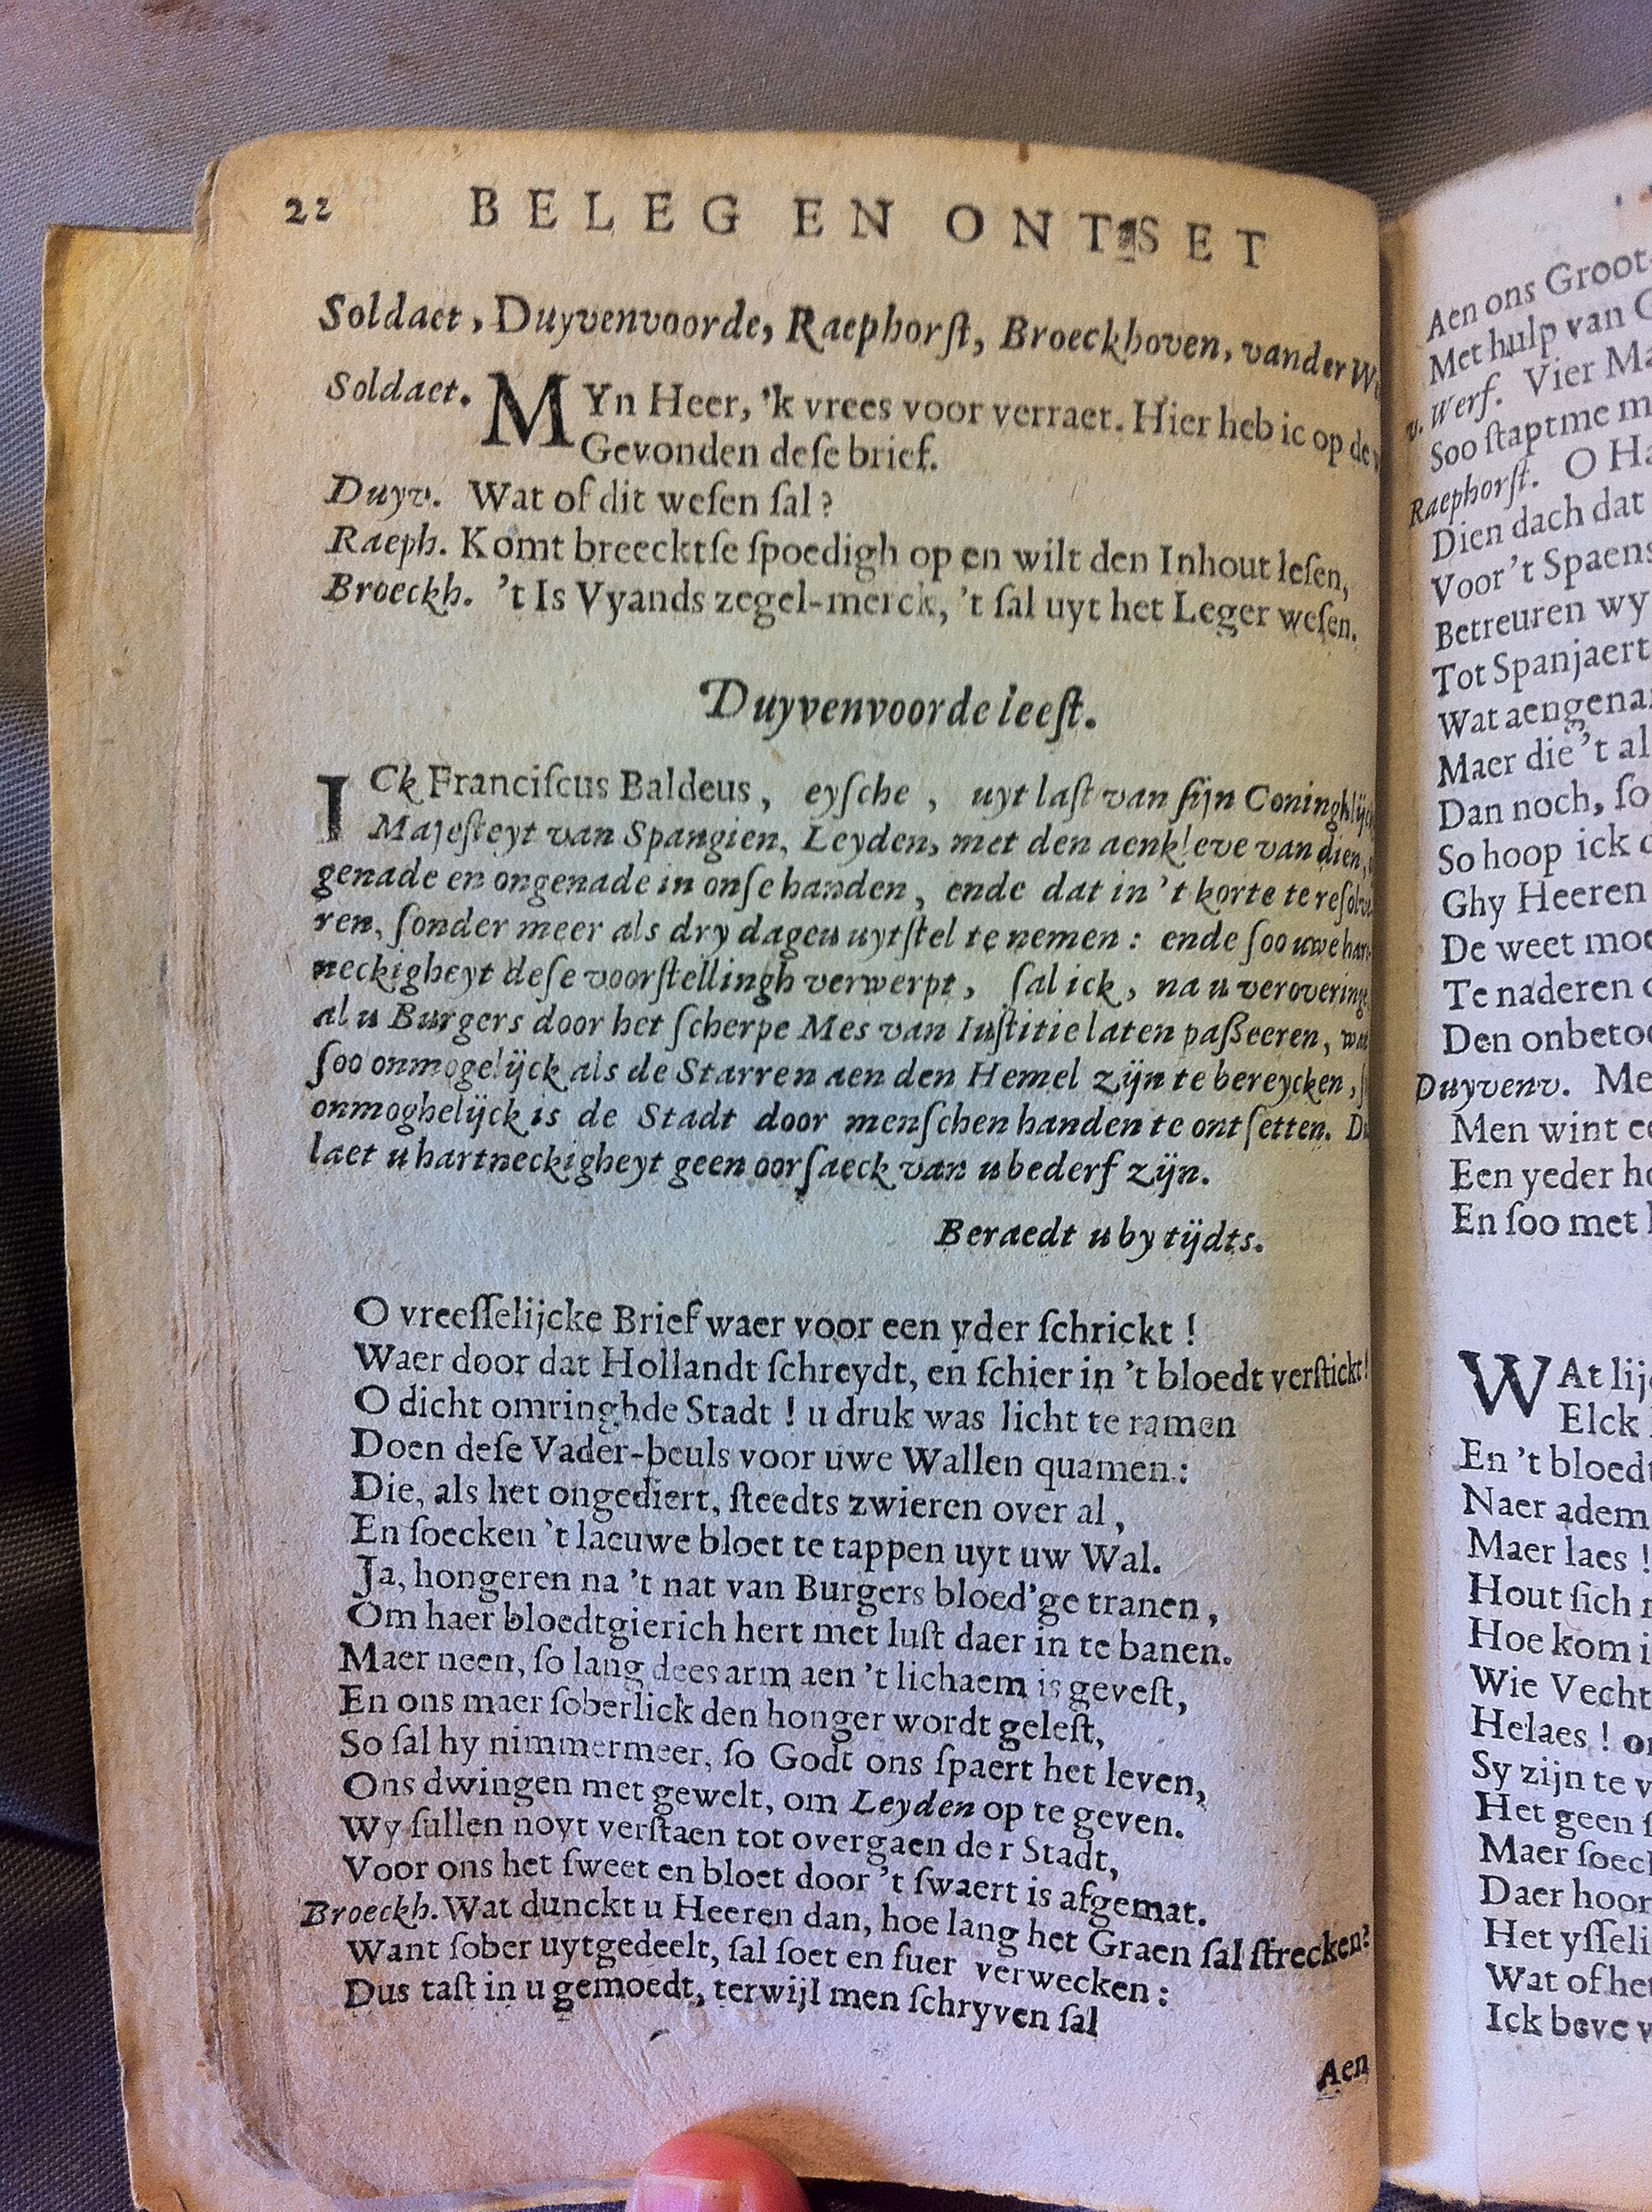 22 BELEG EN ONTSET
Soldaet, Duyvenvoorde, Raephorſt, Broeckhoven, vander
Soldaet. MYn Heer, 'k vrees voor verraet. Hier heb ic op de
Gevonden deſe brief.
Duyv. Wat of dit weſen ſal?
Raeph. Komt breecktſe ſpoedigh op en wilt den Inhout leſen,
Broeckh. 't Is Vyands zegel-merck, 't ſal uyt het Leger weſen.
Duyvenvoorde leeſt.
ICk Franciſcus Baldeus, eyſche, uyt laſt van ſijn Coninghlijck
Majeſteyt van Spangien, Leyden, met den aenkleve van dien,
genade en ongenade in onſe handen, ende dat in 't korte te reſolve
ren, ſonder meer als dry dagen uytſtel te nemen: ende ſoo uwe hart
neckigheyt deſe voorſtellingh verwerpt, ſal ick, na u veroveringe
al u Burgers door het ſcherpe Mes van Iuſtitie laten paſſeeren, want
ſoo onmogelijck als de Starren aen den Hemel zijn te bereycken,
onmoghelijck is de Stadt door menſchen handen te ontſetten.
laet u hartneckigheyt geen oorſaeck van u bederf zijn.
Beraedt u by tijdts.
O vreeſſelijcke Brief waer voor een yder ſchrickt!
Waer door dat Hollandt ſchreydt, en ſchier in 't bloedt verſtickt!
O dicht omringhde Stadt! u druk was licht te ramen
Doen deſe Vader-beuls voor uwe Wallen quamen:
Die, als het ongediert, ſteedts zwieren over al,
En ſoecken 't laeuwe bloet te tappen uyt uw Wal.
Ja, hongeren na 't nat van Burgers bloed'ge tranen,
Om haer bloedtgierich hert met luſt daer in te banen.
Maer neen, ſo lang dees arm aen 't lichaem is geveſt,
En ons maer ſoberlick den honger wordt geleſt,
So ſal hy nimmermeer, ſo Godt ons ſpaert het leven,
Ons dwingen met gewelt, om Leyden op te geven.
Wy ſullen noyt verſtaen tot overgaen der Stadt,
Voor ons het ſweet en bloet door 't ſwaert is afgemat.
Broeckh. Wat dunckt u Heeren dan, hoe lang het Graen ſal ſtrecken?
Want ſober uytgedeelt, ſal ſoet en ſuer verwecken:
Dus taſt in u gemoedt, terwijl men ſchryven ſal
Aen
Aen ons Groot
Met hulp van
v. Werf. Vier
Soo ſtaptme
Raephorſt. O
Dien dach dat
Voor 't Spaens
Betreuren wy
Tot Spanjaert
Wat aengena
Maer die 't al
Dan noch, ſo
So hoop ick
Ghy Heeren
De weet
Te naderen
Den onbetoo
Duyvenv. Me
Men wint
Een yeder
En ſoo met
WAt
Elck
En 't bloedt
Naer adem
Maer laes!
Hout ſich
Hoe kom
Wie Vecht
Helaes!
Sy zijn te
Het geen
Maer ſoeck
Daer hoor
Het yſſeli
Wat of het
Ick beve